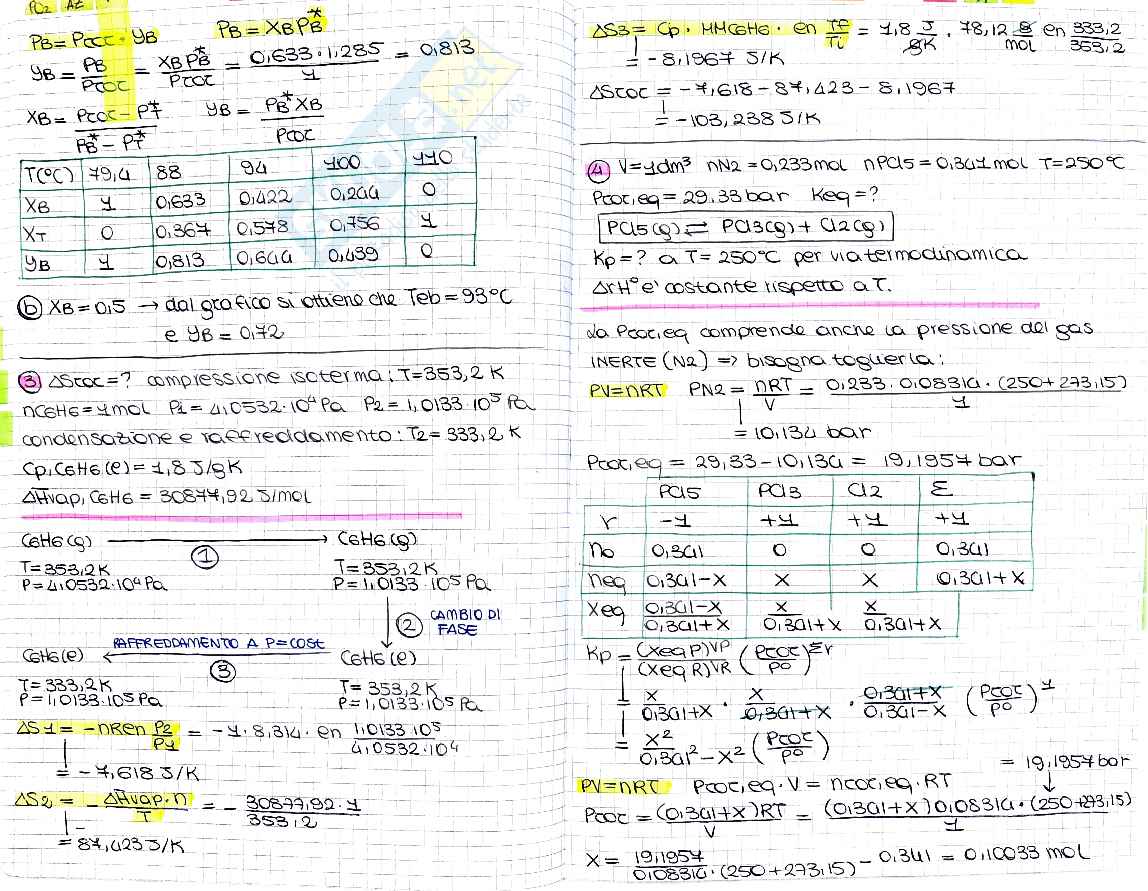 PB = Ptot · yB    PB = XB PB*
yB = PB/Ptot = XB PB*/Ptot = 0,633 · 1,285/1 = 0,813
XB = Ptot - PT*/PB* - PT*    yB = PB* XB/Ptot
T(°C) 79,4 88 94 100 110
XB 1 0,633 0,422 0,244 0
XT 0 0,367 0,578 0,756 1
yB 1 0,813 0,644 0,439 0
b XB = 0,5 → dal grafico si ottiene che Teb = 93°C
e yB = 0,72
3 ΔStot = ? compressione isoterma: T = 353,2 K
nC6H6 = 1mol P1 = 4,0532·10⁴ Pa P2 = 1,0133·10⁵ Pa
condensazione e raffreddamento: T2 = 333,2 K
Cp, C6H6(l) = 1,8 J/gK
ΔHvap, C6H6 = 30877,92 J/mol
C6H6(g) → C6H6(g)
1
T = 353,2 K    T = 353,2 K
P = 4,0532·10⁴ Pa    P = 1,0133·10⁵ Pa
2 CAMBIO DI FASE
RAFFREDDAMENTO A P=cost
C6H6(l) ← C6H6(l)
3
T = 333,2 K    T = 353,2 K
P = 1,0133·10⁵ Pa    P = 1,0133·10⁵ Pa
ΔS1 = -nR ln P2/P1 = -1·8,314 · ln 1,0133·10⁵/4,0532·10⁴
= -7,618 J/K
ΔS2 = -ΔHvap·n/T = - 30877,92·1/353,2
= -87,423 J/K
ΔS3 = Cp · MMC6H6 · ln Tf/Ti = 1,8 J/gK · 78,12 g/mol ln 333,2/353,2
= -8,1967 J/K
ΔStot = -7,618 - 87,423 - 8,1967
= -103,238 J/K
4 V = 1dm³ nN2 = 0,233mol nPCl5 = 0,341mol T = 250°C
Ptot,eq = 29.33 bar Keq = ?
PCl5(g) ⇌ PCl3(g) + Cl2(g)
Kp = ? a T = 250°C per via termodinamica
ΔrH° e' costante rispetto a T.
La Ptot,eq comprende anche la pressione del gas
INERTE (N2) => bisogna toglierla:
PV=nRT PN2 = nRT/V = 0,233·0,08314·(250+273,15)/1
= 10,134 bar
Ptot,eq = 29,33 - 10,134 = 19,1957 bar
PCl5 PCl3 Cl2 Σ
r -1 +1 +1 +1
no 0,341 0 0 0,341
neq 0,341-x x x 0,341+x
Xeq 0,341-x/0,341+x x/0,341+x x/0,341+x
Kp = (Xeq P)^νP/(Xeq R)^νR (Ptot/P°)^Σr
= x/0,341+x · x/0,341+x · 0,341+x/0,341-x (Ptot/P°)¹
= x²/0,341²-x² (Ptot/P°)
= 19,1957 bar
PV=nRT Ptot,eq · V = ntot,eq · RT
Ptot = (0,341+x)RT/V = (0,341+x)0,08314·(250+273,15)/1
x = 19,1957/0,08314·(250+273,15) - 0,341 = 0,10033 mol